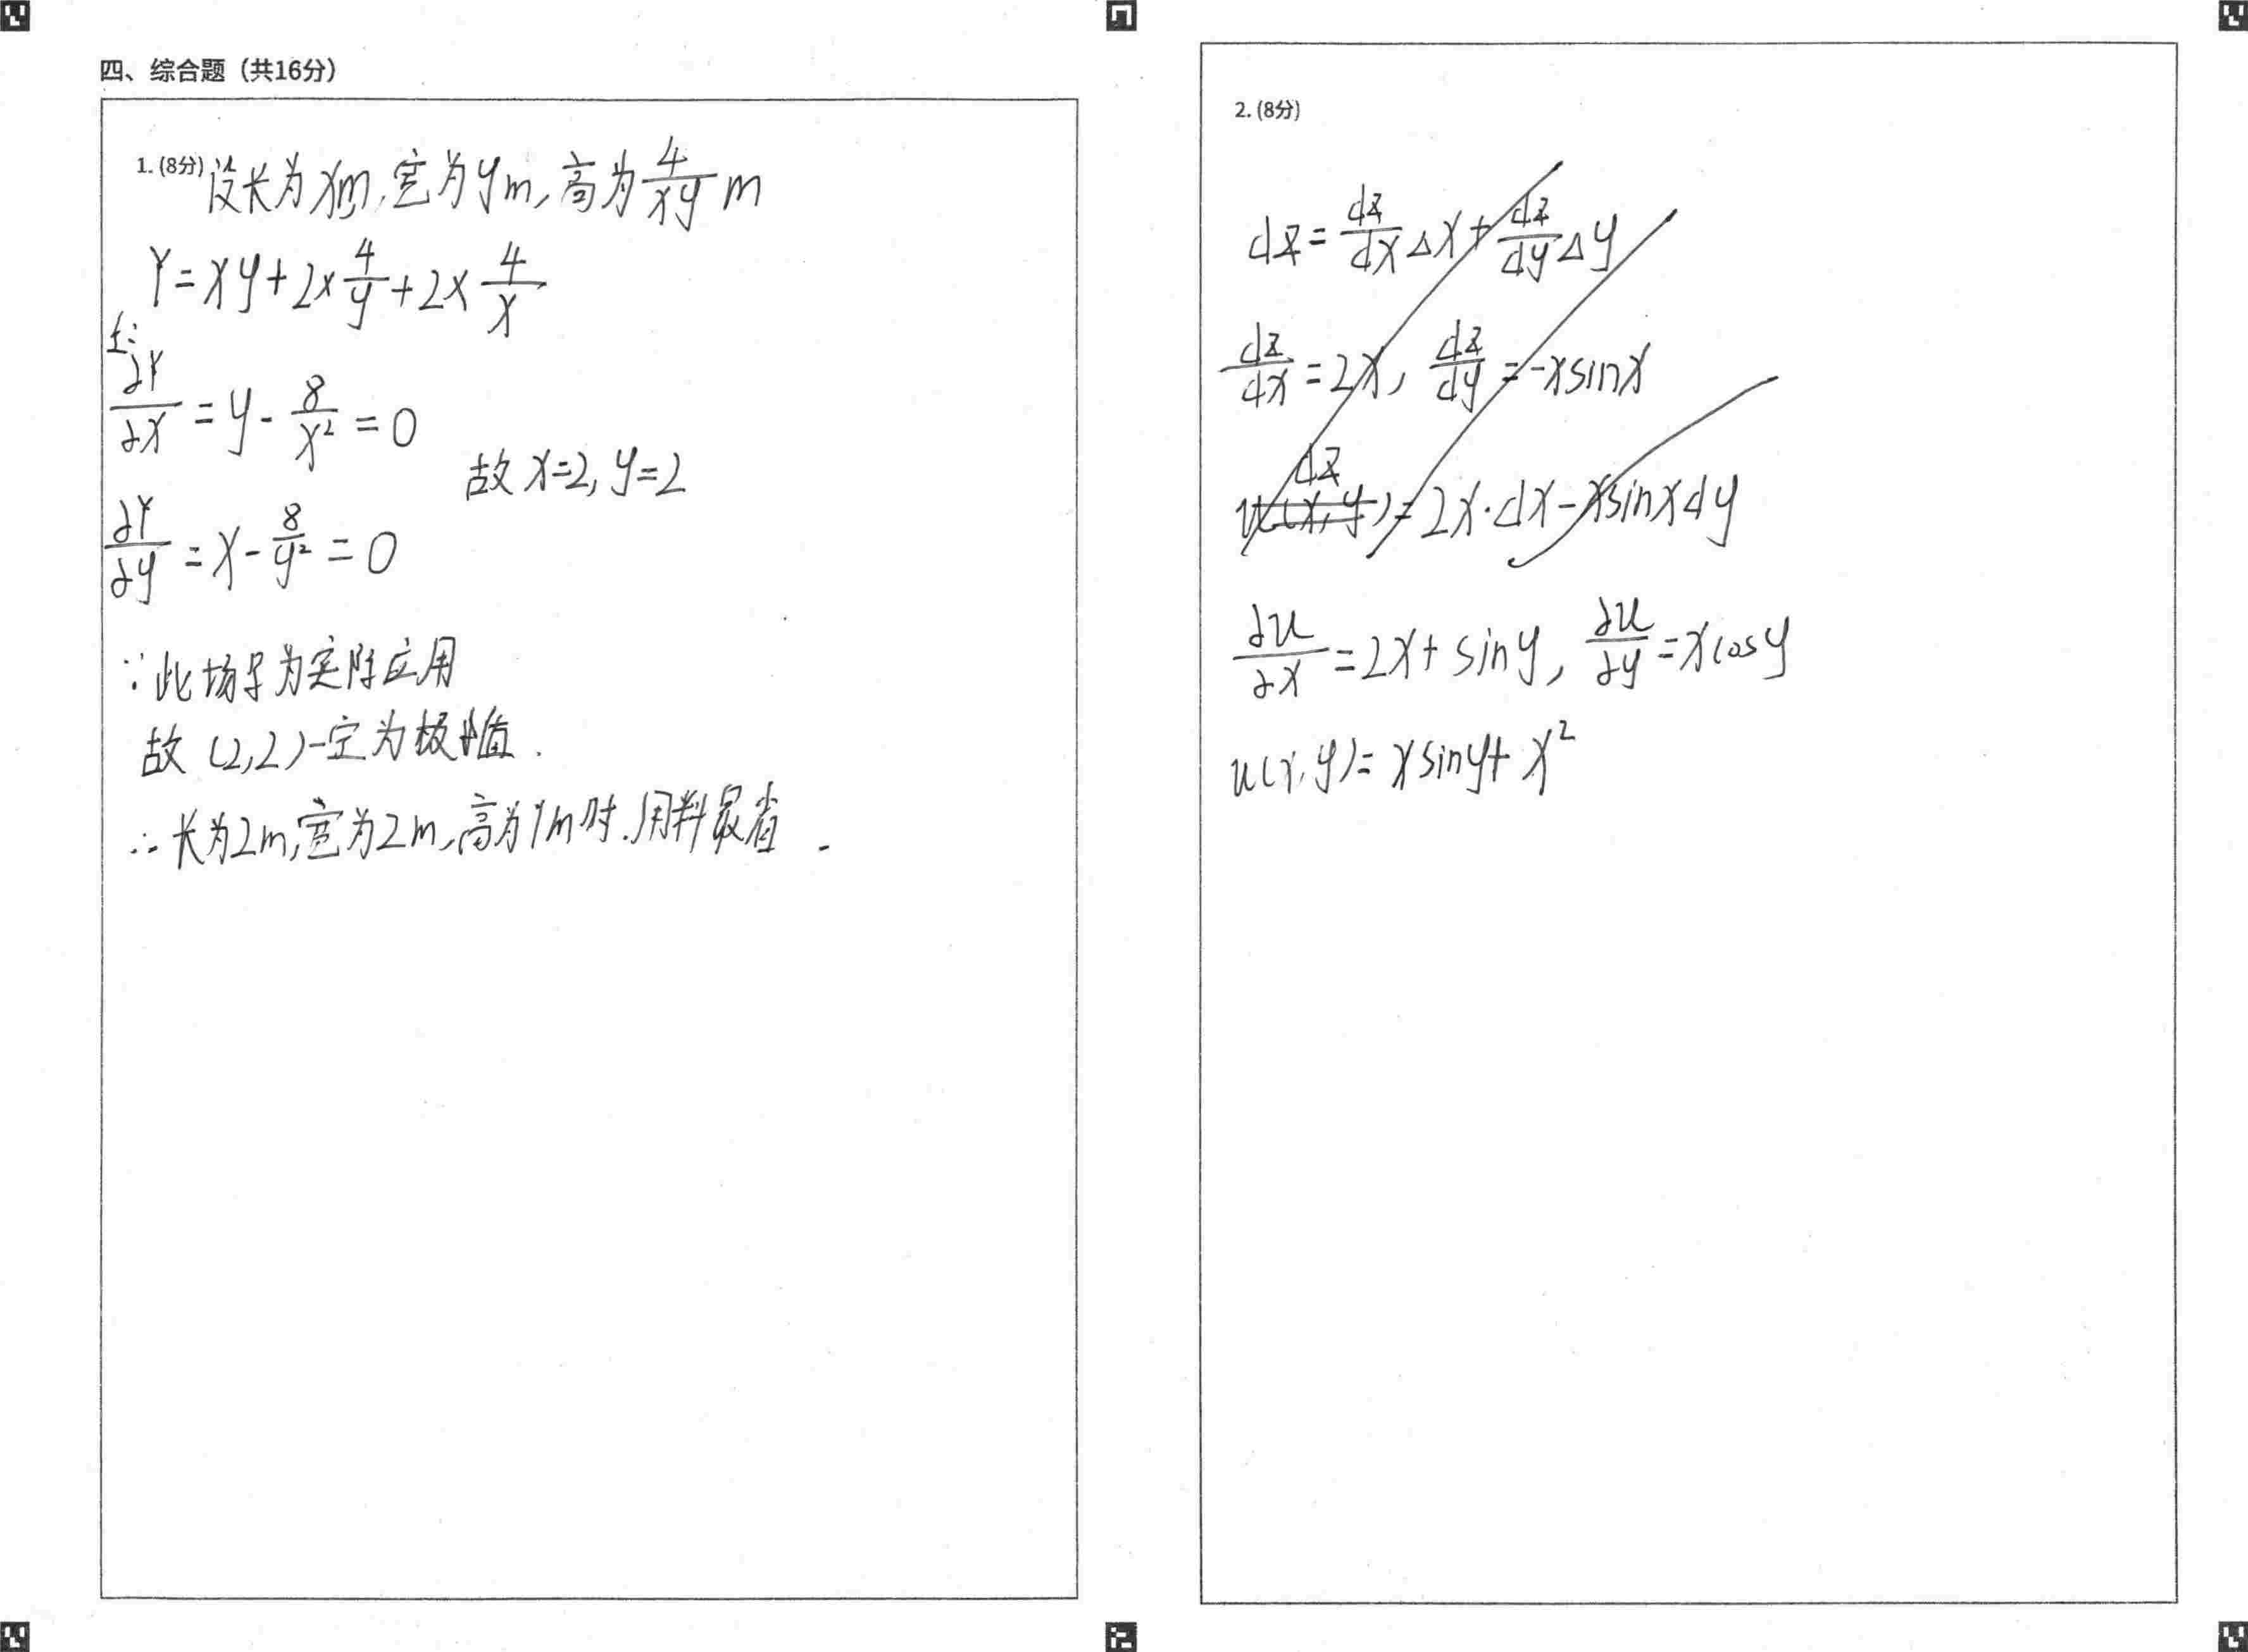 四、综合题（共16分）
1. (8分) 设长为xm,宽为ym,高为4/(xy) m
Y=xy+2×4/y+2×4/x
∂Y/∂x=y-8/x²=0
故x=2,y=2
∂Y/∂y=x-8/y²=0
∵此场景为实际应用
故(2,2)一定为极小值.
∴长为2m,宽为2m,高为1m时.用料最省.
2. (8分)
dz=dz/dx Δx+dz/dy Δy
dz/dx=2x, dz/dy=-xsinx
dz
u(x,y)=2x·dx-xsinxdy
∂u/∂x=2x+siny, ∂u/∂y=xcosy
u(x,y)=xsiny+x²